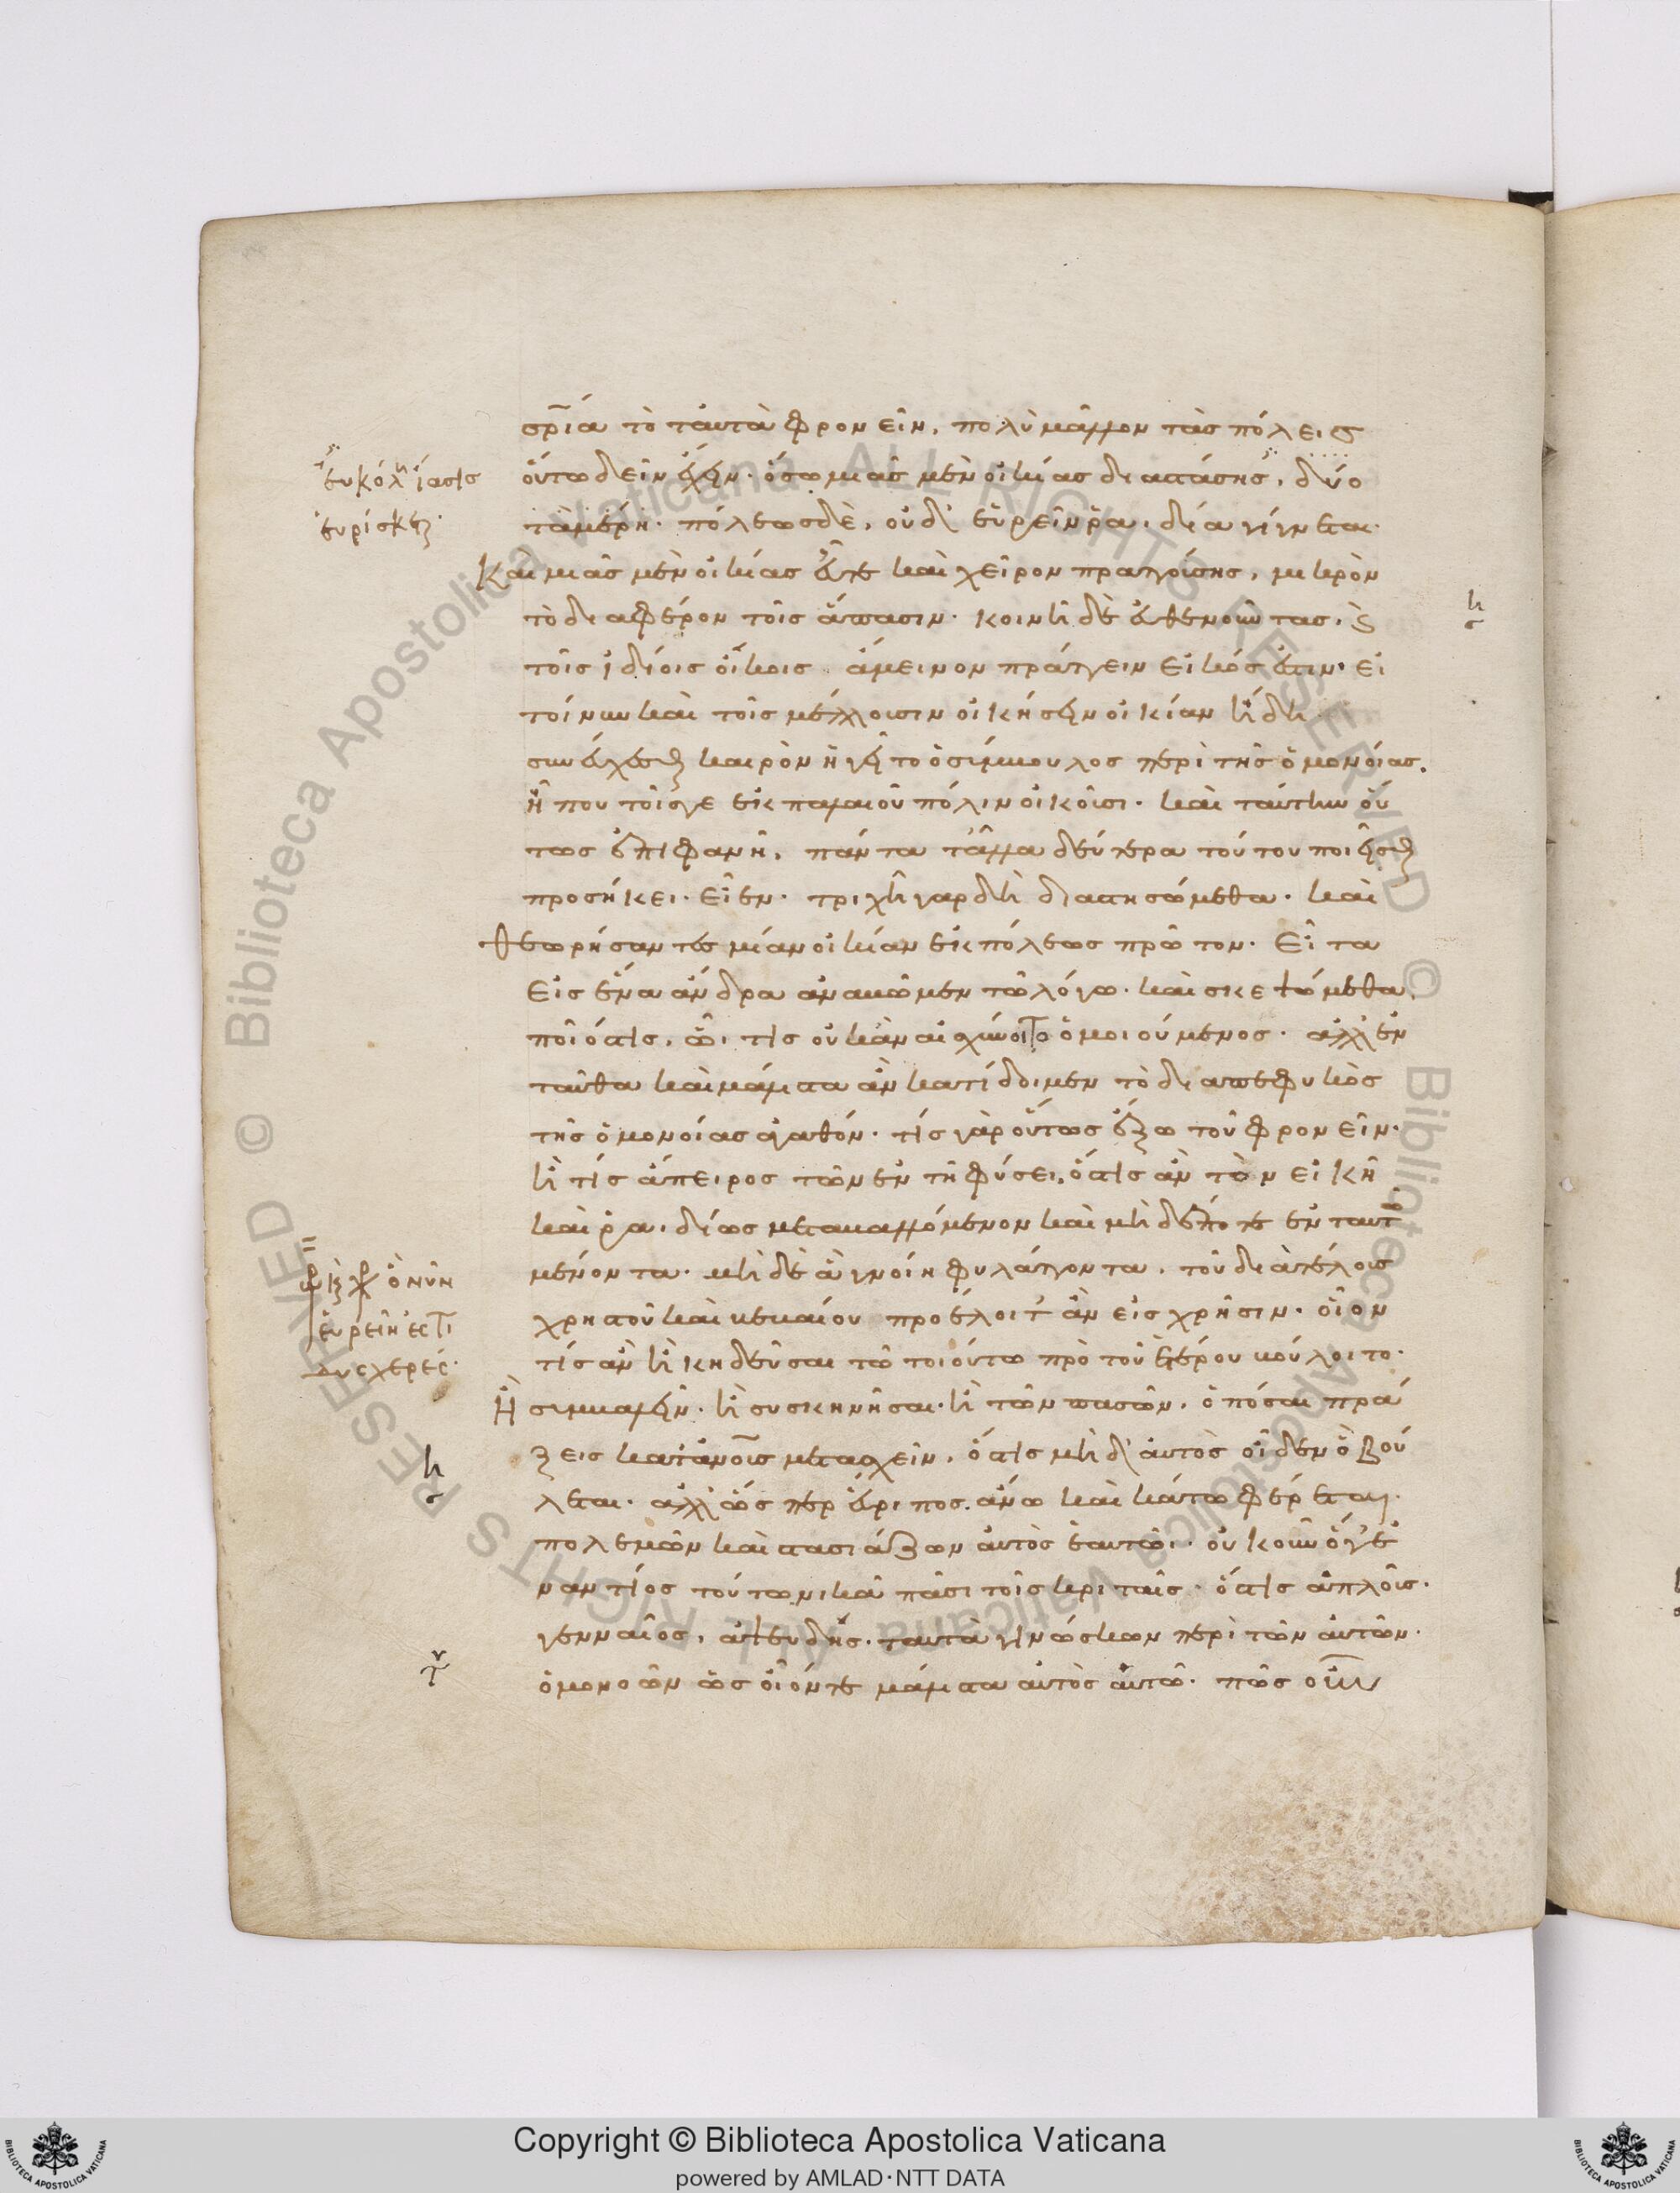 σρία τὸ ταυτὰ φρονεῖν, πολὺ μᾶλλον τὰς πόλεις
οὕτω δεῖν ἔχειν. ὅσω μιᾶς μὲν οἰκίας διαστάσης, δύο
τὰ μέρη. πόλεως δὲ, οὐδ' εὑρεῖν ῥαιδία γίγνεται.
Καὶ μιᾶς μὲν οἰκίας εὖτε καὶ χεῖρον πραττούσης, μικρὸν
τὸ διαφέρον τοῖς ἅπασιν. κοινῆ δὲ εὐθενούντας, καὶ
τοῖς ἰδίοις οἴκοις ἄμεινον πράττειν εἰκός ἐστιν. εἰ
τοίνυν καὶ τοῖς μέλλουσιν οἰκήσειν οἰκίαν ἢ δὴ
συνέχεσθαι καιρὸν ἡγεῖτο ὁ σύμβουλος περὶ τῆς ὁμονοίας.
ἦ που τοῖς γε ἐκ παλαιοῦ πόλιν οἰκοῦσι. καὶ ταύτην οὕ
τως ἐπιφανῆ, πάντα τἆλλα δεύτερα τούτου ποιεῖσθαι
προσήκει. εἶεν. τριχῆ γαρ δὴ διαστησώμεθα. καὶ
θεωρήσαντες μίαν οἰκίαν ἐκ πόλεως πρῶτον. Εἶτα
εἰς ἕνα ἄνδρα ἀναβῶμεν τῶ λόγω. καὶ σκεψώμεθα
ποῖός τις, ὧι τις οὐκ ἂν αἰσχύνοιτο ὁμοιούμενος. ἀλλ' ἐν
ταῦθα καὶ μάλιστα ἂν κατίδοιμεν τὸ διαπεφυκὸς
τῆς ὁμονοίας ἀγαθόν. τίς γὰρ οὕτως ἔξω τοῦ φρονεῖν.
ἢ τίς ἄπειρος τῶν ἐν τῆ φύσει. ὅστις ἂν τὸν εἰκῆ
καὶ ῥαιδίως μεταβαλλόμενον καὶ μὴ δέποτε ἐν ταυτῶ
μένοντα. μὴ δὲ ἃ γνοίη φυλάττοντα, τοῦ διὰ τέλους
χρηστοῦ καὶ βεβαίου προέλοιτ' ἂν εἰς χρῆσιν. οἷον
τίς ἂν ἢ κηδεῦσαι τῶ τοιούτω πρὸ τοῦ ἑτέρου βούλοιτο.
Ἢ συμβαλεῖν. ἢ συσκηνῆσαι. ἢ τῶν πασῶν, ὁπόσαι πρά
ξεις κατ' ἀνθρώπους μετασχεῖν, ὅστις μὴ δ' αὐτὸς οἶδεν ὃ βού
λεται. ἀλλ' ὥσπερ εὔριπος ἄνω καὶ κάτω φέρεται.
πολεμῶν καὶ στασιάζων αὐτὸς ἑαυτῶι. οὐκοῦν ὅγ' ἐ
ναντίος τούτωι νικᾶ πᾶσι τοῖς κριταῖς. ὅστις ἁπλοῦς.
γενναῖος, ἀψευδής. ταυτὰ γινώσκων περὶ τῶν αὐτῶν.
ὁμονοῶν ὡς οἷόν τε μάλιστα αὐτὸς αὑτῶ. πῶς οὖν
εὔκολον ἴασιν
εὑρίσκειν
ὃ νῦν
εὑρεῖν ἐστι
δυσχερές.